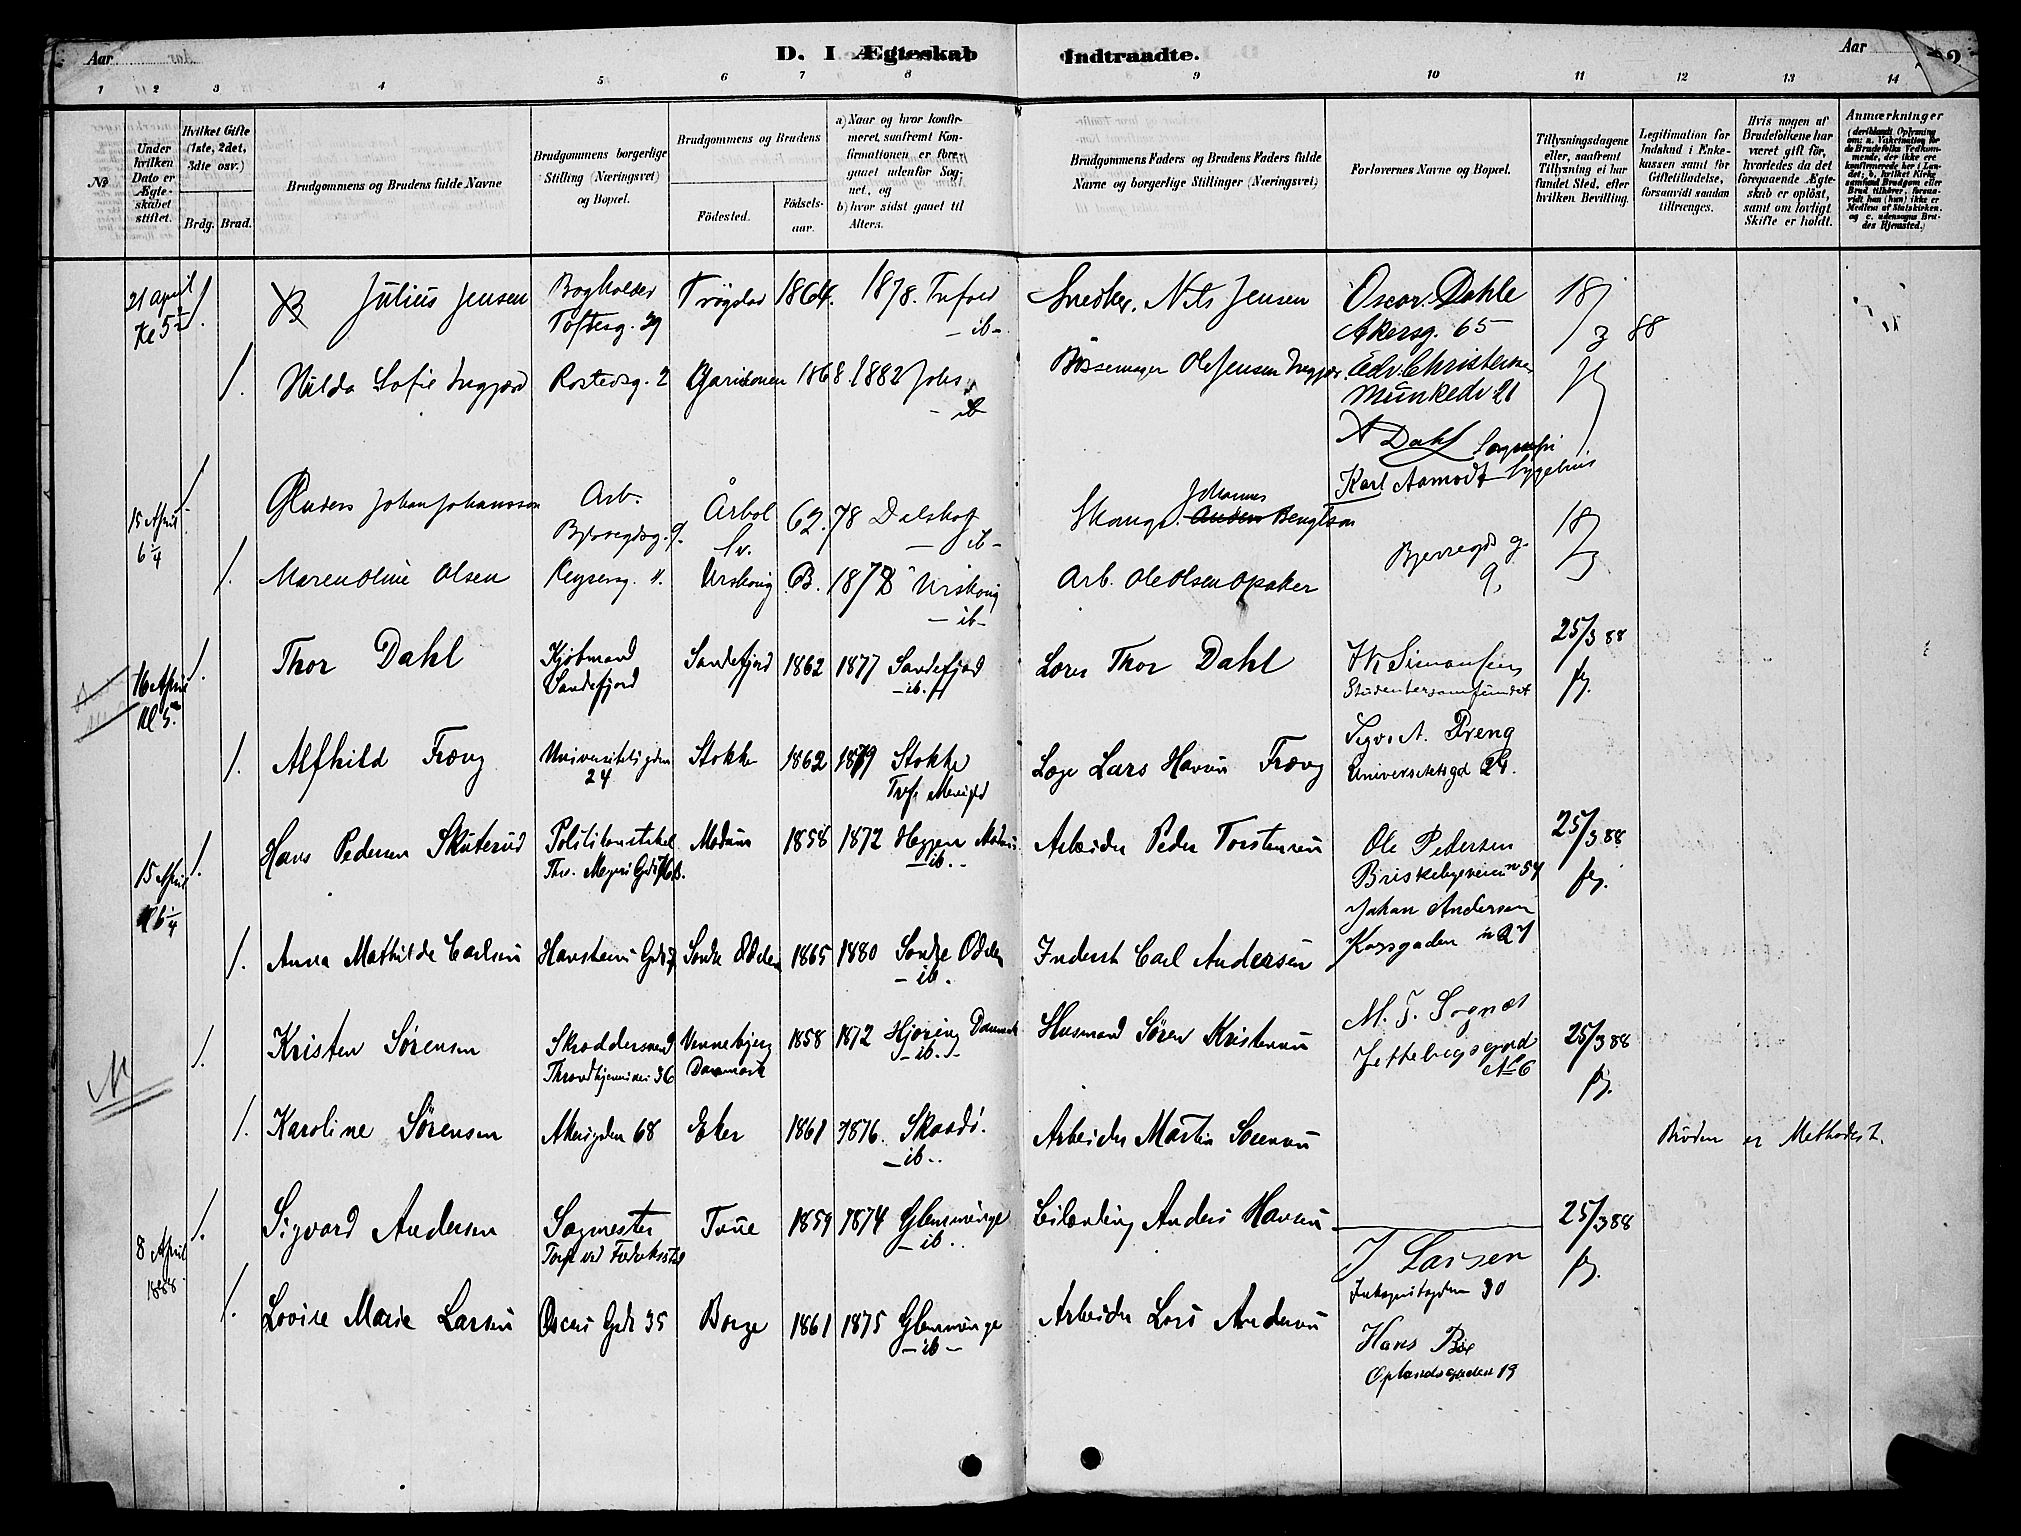 Aar
D. I Ægteskab Indtraadte.
Aar
1 2 3 4 5 6 7 8 9 10 11 12 13 14
No
Under hvilken Dato er Ægteskabet stiftet.
Hvilket Gifte (1ste, 2det, 3die osv.)
Brdg. Brud.
Brudgommens og Brudens fulde Navne
Brudgommens borgerlige Stilling (Næringsvei) og Bopæl.
Brudgommens og Brudens
Fødested.
Fødselsaar.
a) Naar og hvor konfirmeret, saafremt Konfirmationen er foregaaet udenfor Sognet, og
b) hvor sidst gaaet til Alters.
Brudgommens Faders og Brudens Faders fulde Navne og borgerlige Stillinger (Næringsvei)
Forlovernes Navne og Bopæl.
Tillysningsdagene eller, saafremt Tillysning ei har fundet Sted, efter hvilken Bevilling.
Legitimation for Indskud i Enkekassen samt for Giftetilladelse, forsaavidt saadan tiltrænges.
Hvis nogen af Brudefolkene har været gift før, hvorledes da det foregaaende Ægteskab er opløst, samt om lovligt Skifte er holdt.
Anmærkninger
21 April Kl 5
Julius Jensen
Bogholder
Toftesg. 29
1864.
1878.
-ib-
Snedker, Nils Jensen
Oscar Dahle
Akersg. 65
18/3 88
Hilda Sofie
Rostedsg. 2
1868.
1882
ib
Ole Jensen
Edv. Christensen
21
A Dahl
Karl Aamodt
15 April
6 1/4
Anders Johan Johansson
Arb.
9.
Årbol
Sv.
62.
78 Dalskog
-ib-
Johannes
Anders Bengtson
9,
18/3
Maren Oline Olsen
Urskoug
1878 Urskoug
-ib-
Arb. Ole Olsen Opaker
16 April
Kl 5
Thor Dahl
Kjøbmand
Sandefjord
Sandefjord
1862
1877 Sandefjord
-ib.
Thor Dahl
Simonsen
Studentersamfundet
25/3 88
Alfhild Fræng
Universitetsgden
24
Stokke
1862
1879 Stokke
Lars Hansen Fræng
Dreng
Universitetsgd 24.
15 April
6 1/4
Hans Pedersen Skuterud
Politikonstabel
Ths. Meyers Gd
Modum
1858
1872 Heggen Modum
-ib..
Arbeider Peder Torstensen
Ole Pedersen
Briskebyveien No 54
Johan Andersen
Korsgaden No 27
25/3 88
Anna Mathilde Carlsen
Hansteens Gd
Søndre Odalen
1865
1880 Søndre Odalen
-ib.
Inderst Carl Andersen
M
Kristen Sørensen
Skræddersvend
Throndhjemsveien 36
Vennebjerg
Danmark
1858
1872 Hjøring Danmark
-ib..
Husmand Søren Kristensen
M. T. Sognæs
No 6
25/3 88
Karoline Sørensen
Akersgden 68
Eker
1861
1876. Skaadø.
-ib..
Arbeider Martin Sørensen
Bruden er Methodist.
8 April
1888.
Sigvard Andersen
Sagmester
Torp ved Fredriksstad
Tune
1859
1874 Glemminge
-ib..
Anders Hansen
J Larsen
30
25/3 88
Lovise Marie Larsen
Oscars Gd 35
Borge
1861
1875 Glemminge
-ib-
Arbeider Lars Andersen
Hans Bøe
Oplandsgaden 19